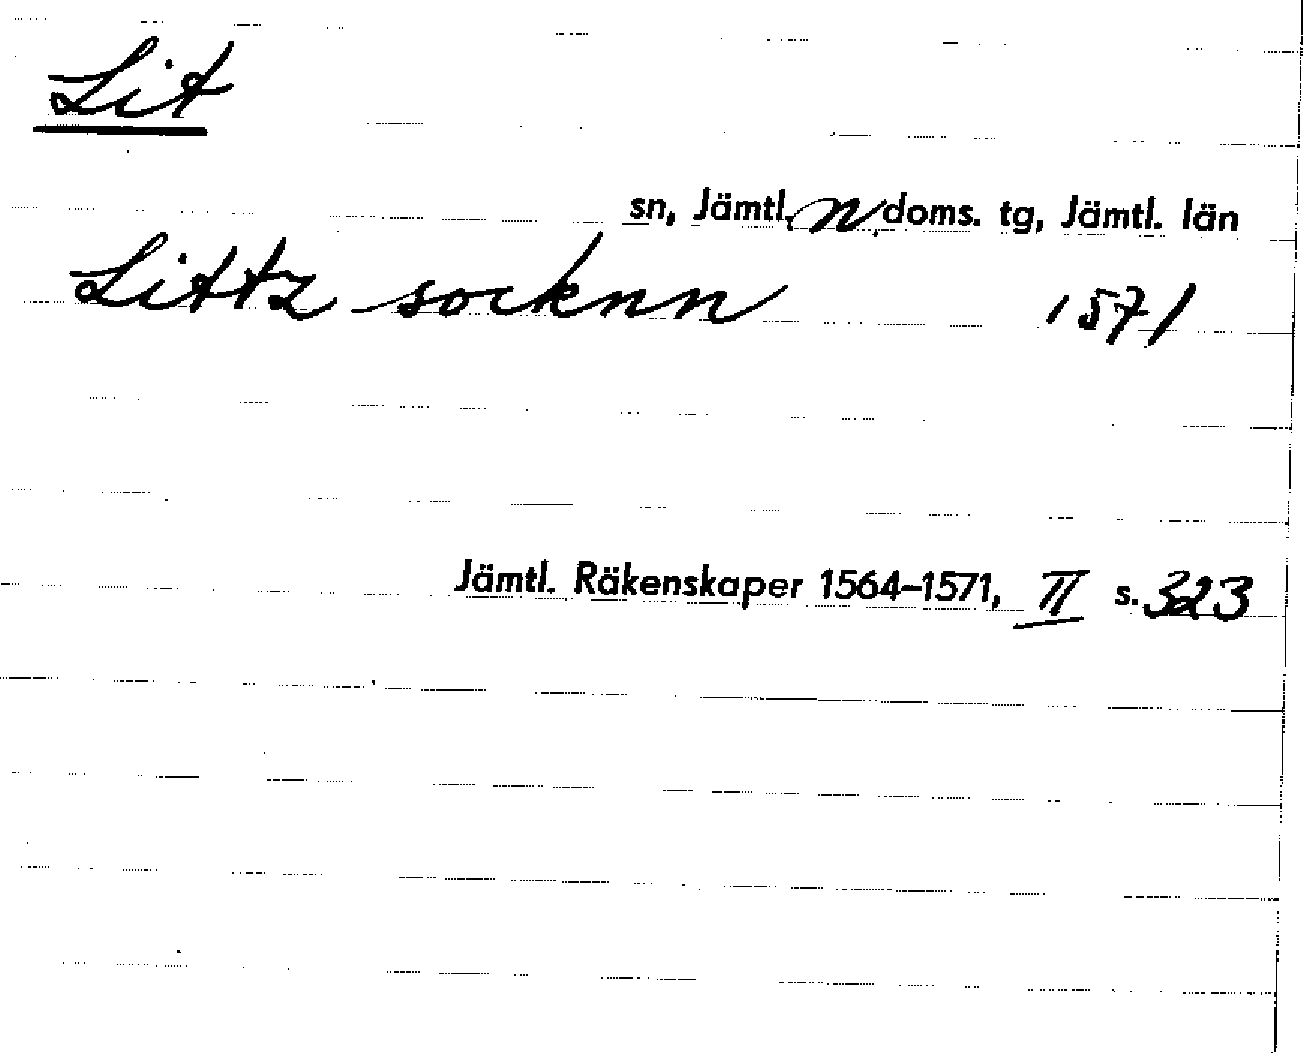 Lit
sn, Jämtl. n. doms. tg, Jämtl. län
Littz socknn 1571
Jämtl. Räkenskaper 1564–1571, II s. 323